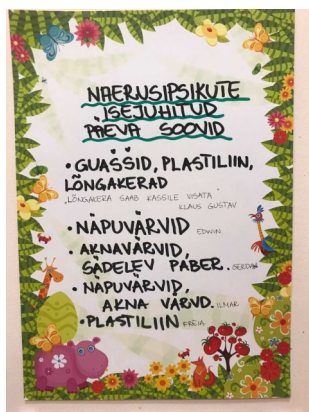 NAERUSIPSIKUTE
ISEJUHITUD
PÄEVA SOOVID
• GUAŠŠID, PLASTILIIN,
LÕNGAKERAD
LÕNGAKERA SAAB KASSILE VISATA
KLAUS GUSTAV
• NÄPUVÄRVID EDWIN
• AKNAVÄRVID,
SÄDELEV PABER. GERDA
• NÄPUVÄRVID,
AKNA VÄRVID. ILMAR
• PLASTILIIN FREIA